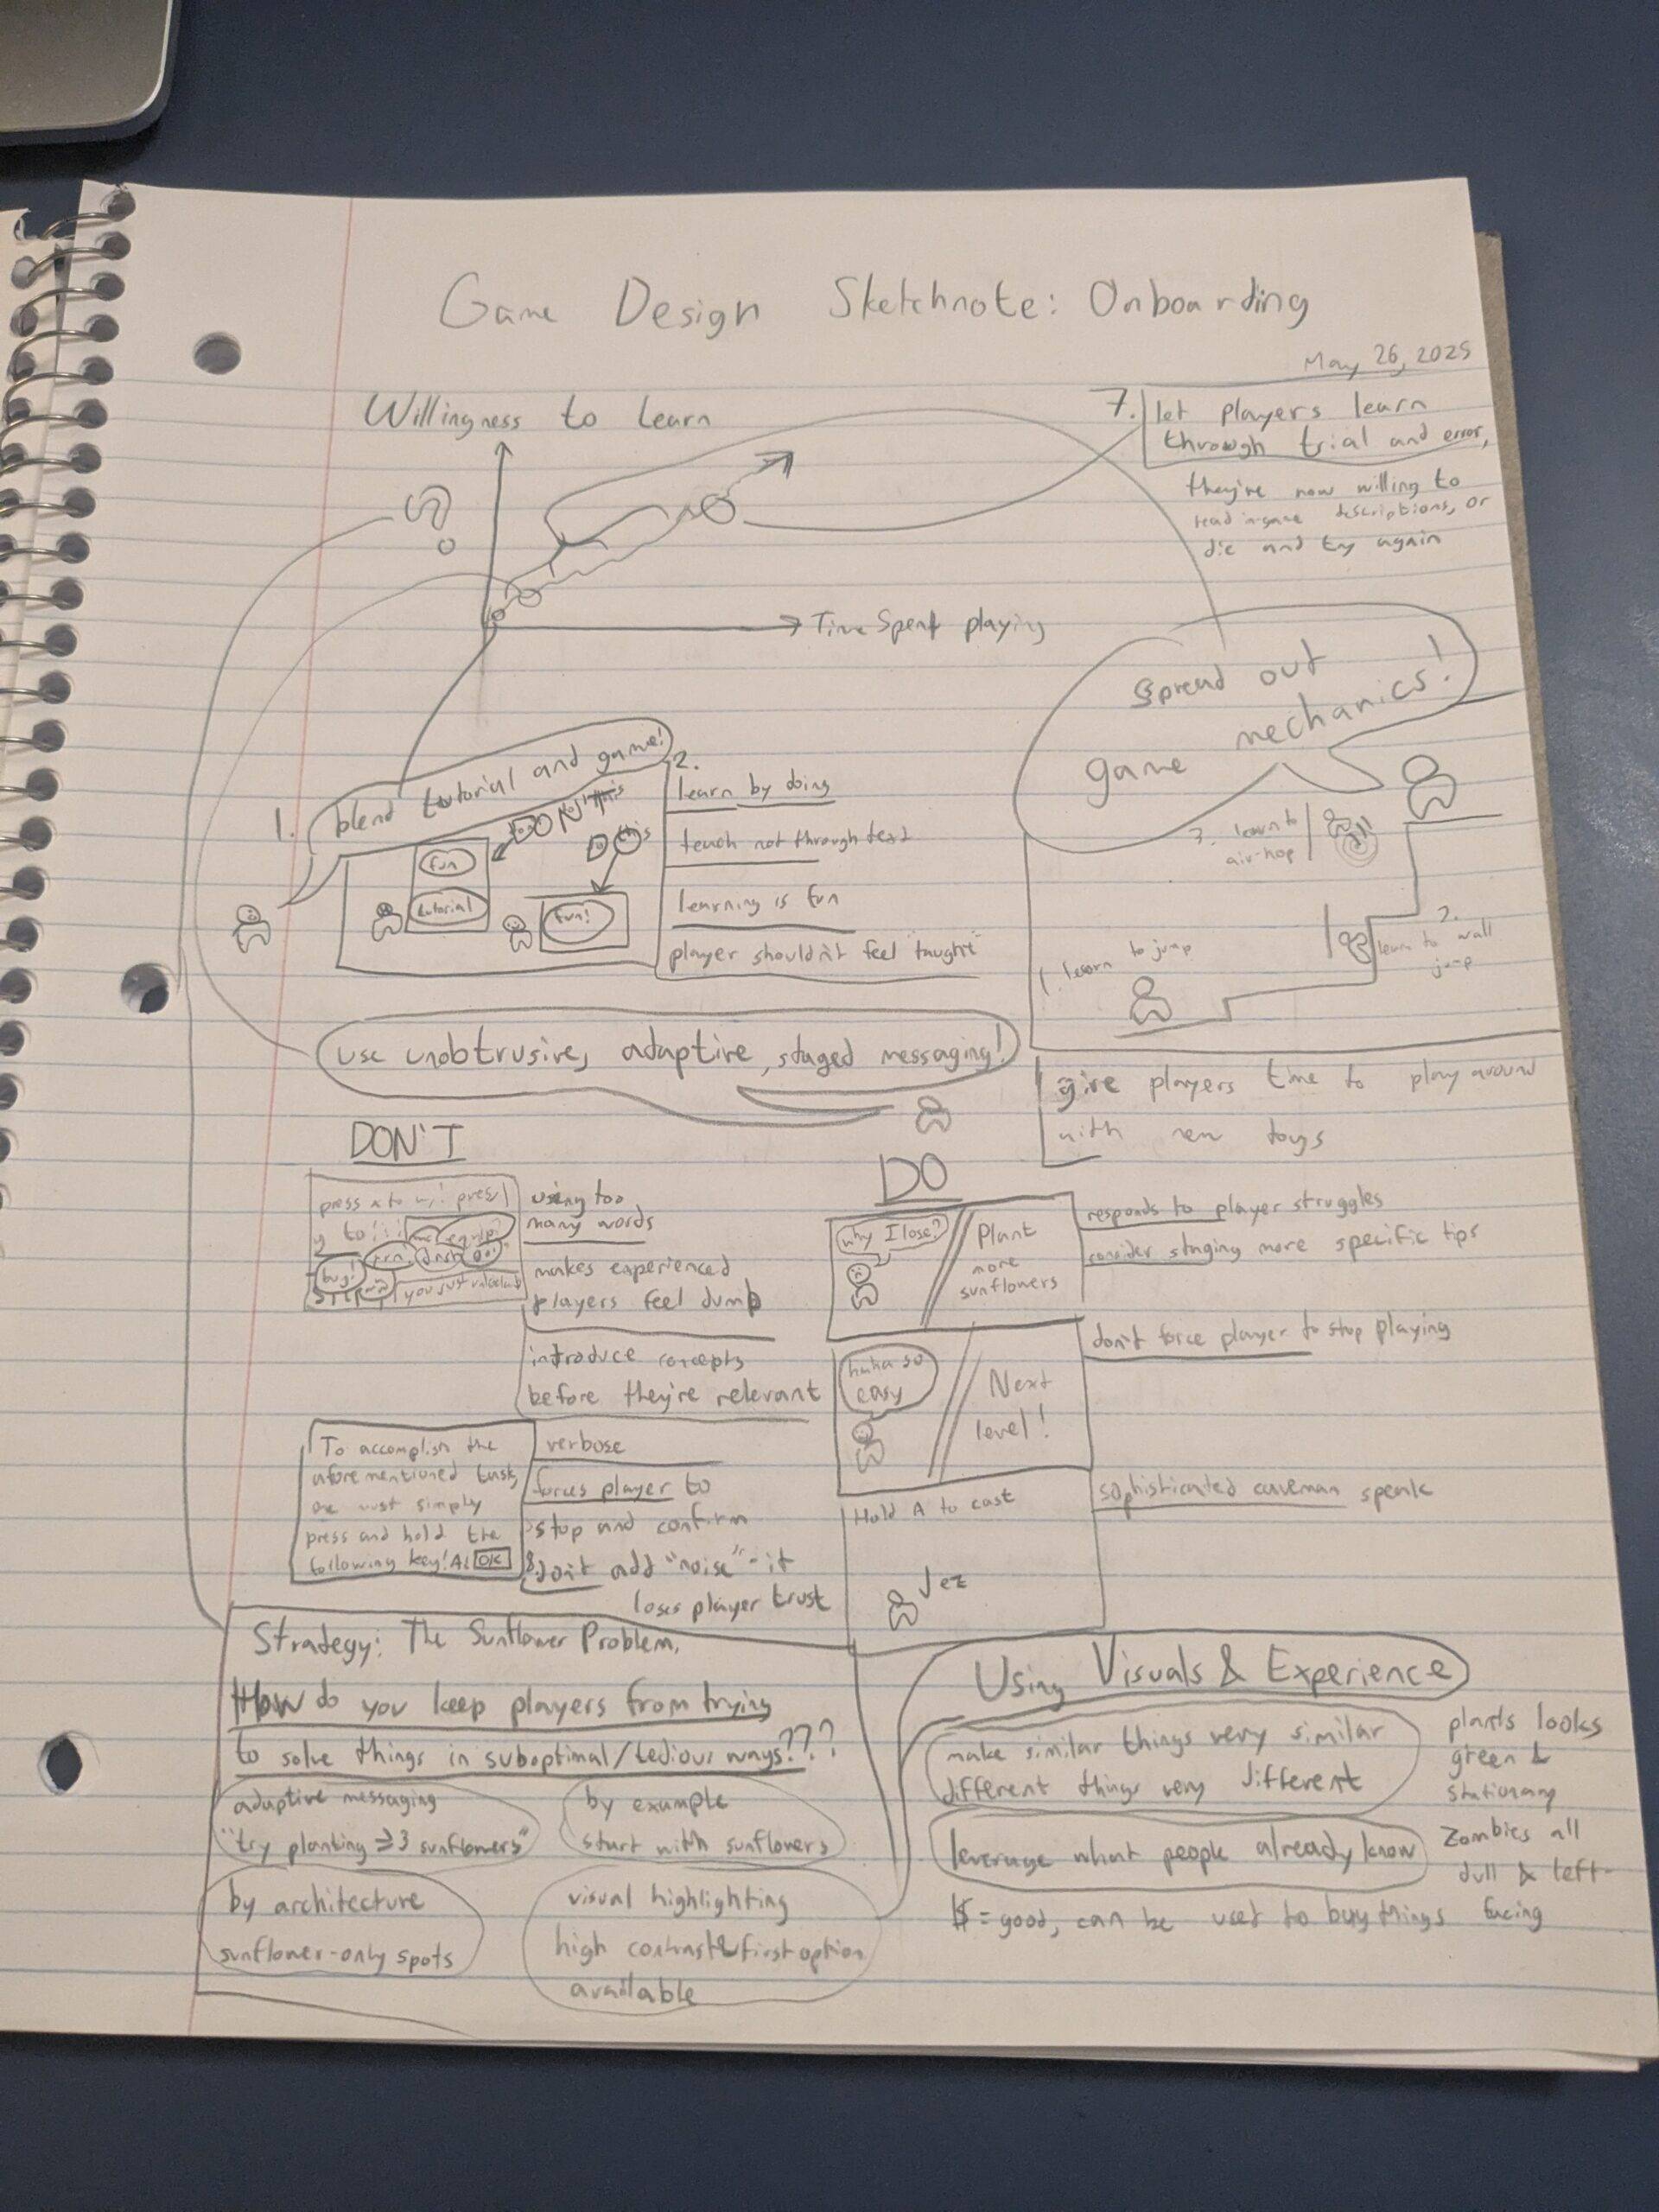 Game Design Sketchnote: Onboarding
May 26, 2025
Willingness to Learn
Time Spent playing
7. let players learn
through trial and error,
they're now willing to
read in-game descriptions, or
die and try again
Spread out
game mechanics!
1. learn to jump
2.
learn to wall
jump
3. learn to
air-hop
give players time to play around
with new toys
1. blend tutorial and game!
fun
tutorial
Not this
Do this
fun!
2.
learn by doing
teach not through text
learning is fun
player shouldn't feel "taught"
use unobtrusive, adaptive, staged messaging!
DON'T
press x to
y to
equip?
buy!
you just
using too
many words
makes experienced
players feel dumb
introduce concepts
before they're relevant
To accomplish the
aforementioned task,
one must simply
press and hold the
following key! A! OK
verbose
forces player to
stop and confirm
& don't add "noise" - it
loses player trust
DO
why I lose?
Plant
more
sunflowers
responds to player struggles
consider staging more specific tips
haha so
easy
Next
level!
don't force player to stop playing
Hold A to cast
ez
sophisticated caveman speak
Strategy: The Sunflower Problem,
How do you keep players from trying
to solve things in suboptimal/tedious ways???
adaptive messaging
"try planting ≥3 sunflowers"
by example
start with sunflowers
by architecture
sunflower-only spots
visual highlighting
high contrast & first option
available
Using Visuals & Experience
make similar things very similar
different things very different
plants looks
green &
stationary
leverage what people already know
Zombies all
dull & left-
facing
$ = good, can be used to buy things